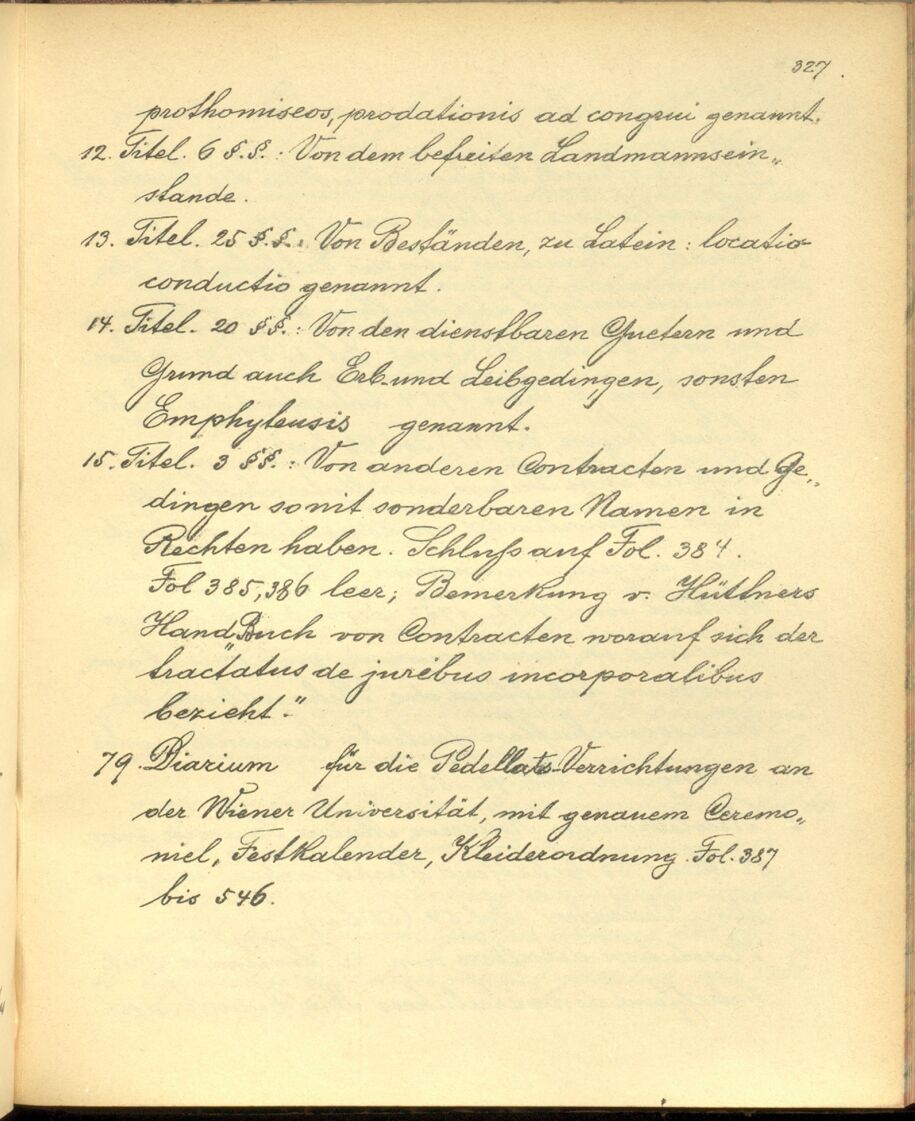 327.
prothomiseos, prodationis ad congrui genannt.
12. Titel. 6 §.§.: Von dem befreiten Landmannsein„
stande.
13. Titel. 25 §.§.: Von Beständen, zu Latein: locatio-
conductio genannt.
14. Titel. 20 §§.: Von den dienstbaren Guetern und
Grund auch Erb- und Leibgedingen, sonsten
Emphyteusis genannt.
15. Titel. 3 §§.: Von anderen Contracten und Ge„
dingen so nit sonderbaren Namen in
Rechten haben. Schluß auf Fol. 384.
Fol 385, 386 leer; Bemerkung v. Hüttners
Hand „Buch von Contracten worauf sich der
tractatus de juribus incorporalibus
bezieht."
79. Diarium für die Pedellats-Verrichtungen an
der Wiener Universität, mit genauem Ceremo„
niel, Festkalender, Kleiderordnung. Fol. 387
bis 546.